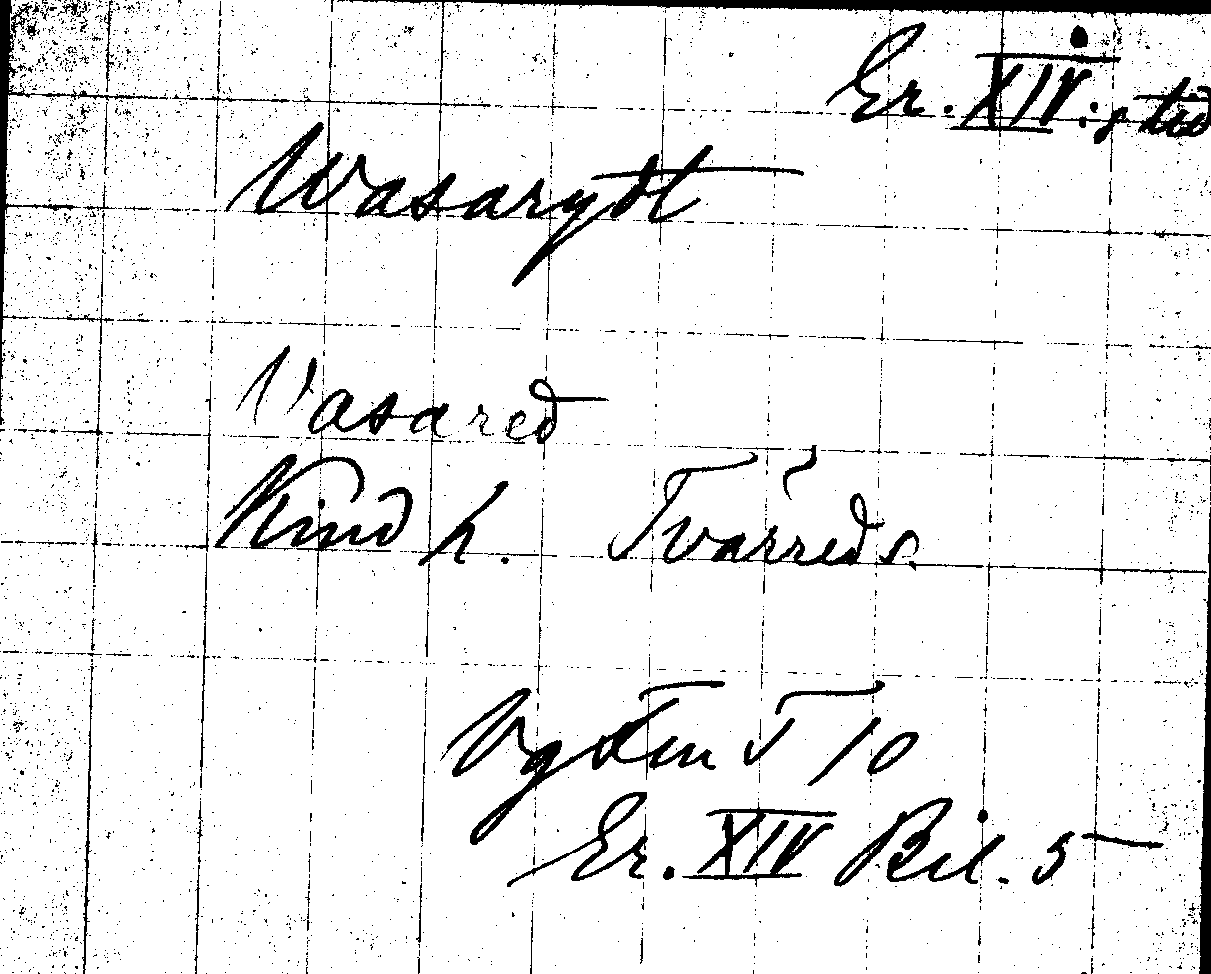 Er. XIV:s tid
Wasarydt
Vasared
Kind h. Tvärred s.
Vg Fin T 10
Er. XIV Bil. 5